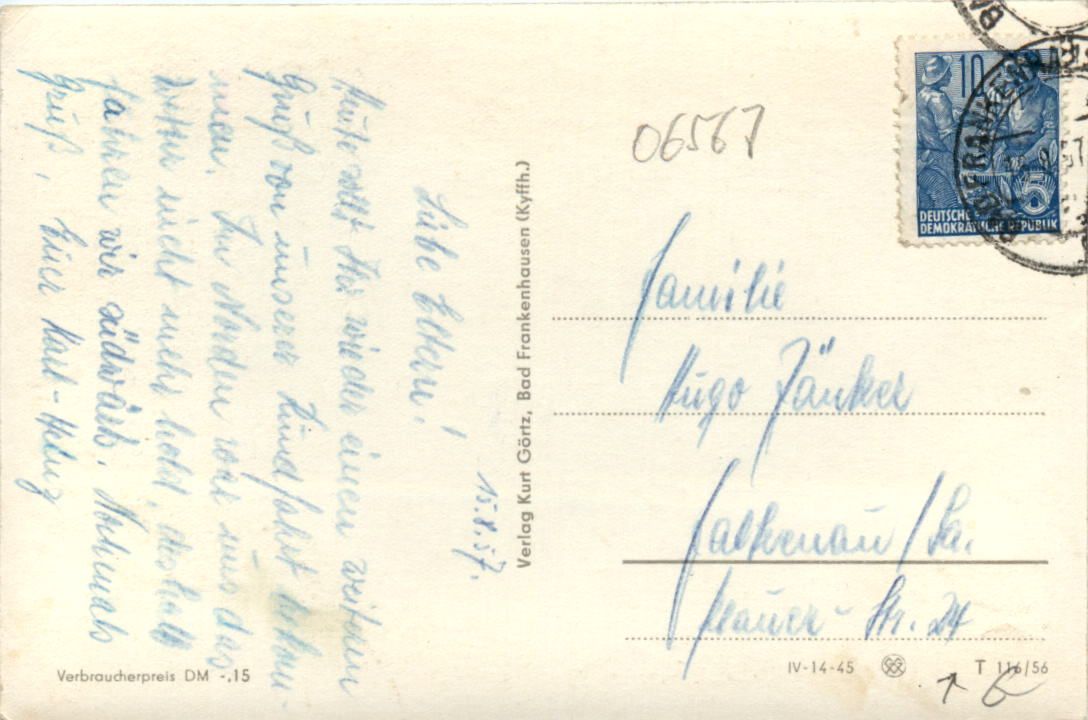 15.8.57.
Liebe Eltern!
Heute sollt Ihr wieder einen weiteren
Gruß von unserer Rundfahrt bekom-
men. Im Norden war uns das
Wetter nicht mehr hold, deshalb
fahren wir südwärts. Nochmals
Gruß, Euer Karl-Heinz
Verbraucherpreis DM -,15
Verlag Kurt Görtz, Bad Frankenhausen (Kyffh.)
06567
10
5
DEUTSCHE
DEMOKRATISCHE REPUBLIK
BAD FRANKENHAUSEN
Familie
Hugo Jänker
Falkenau/Sa.
Str. 24
IV-14-45
T 116/56